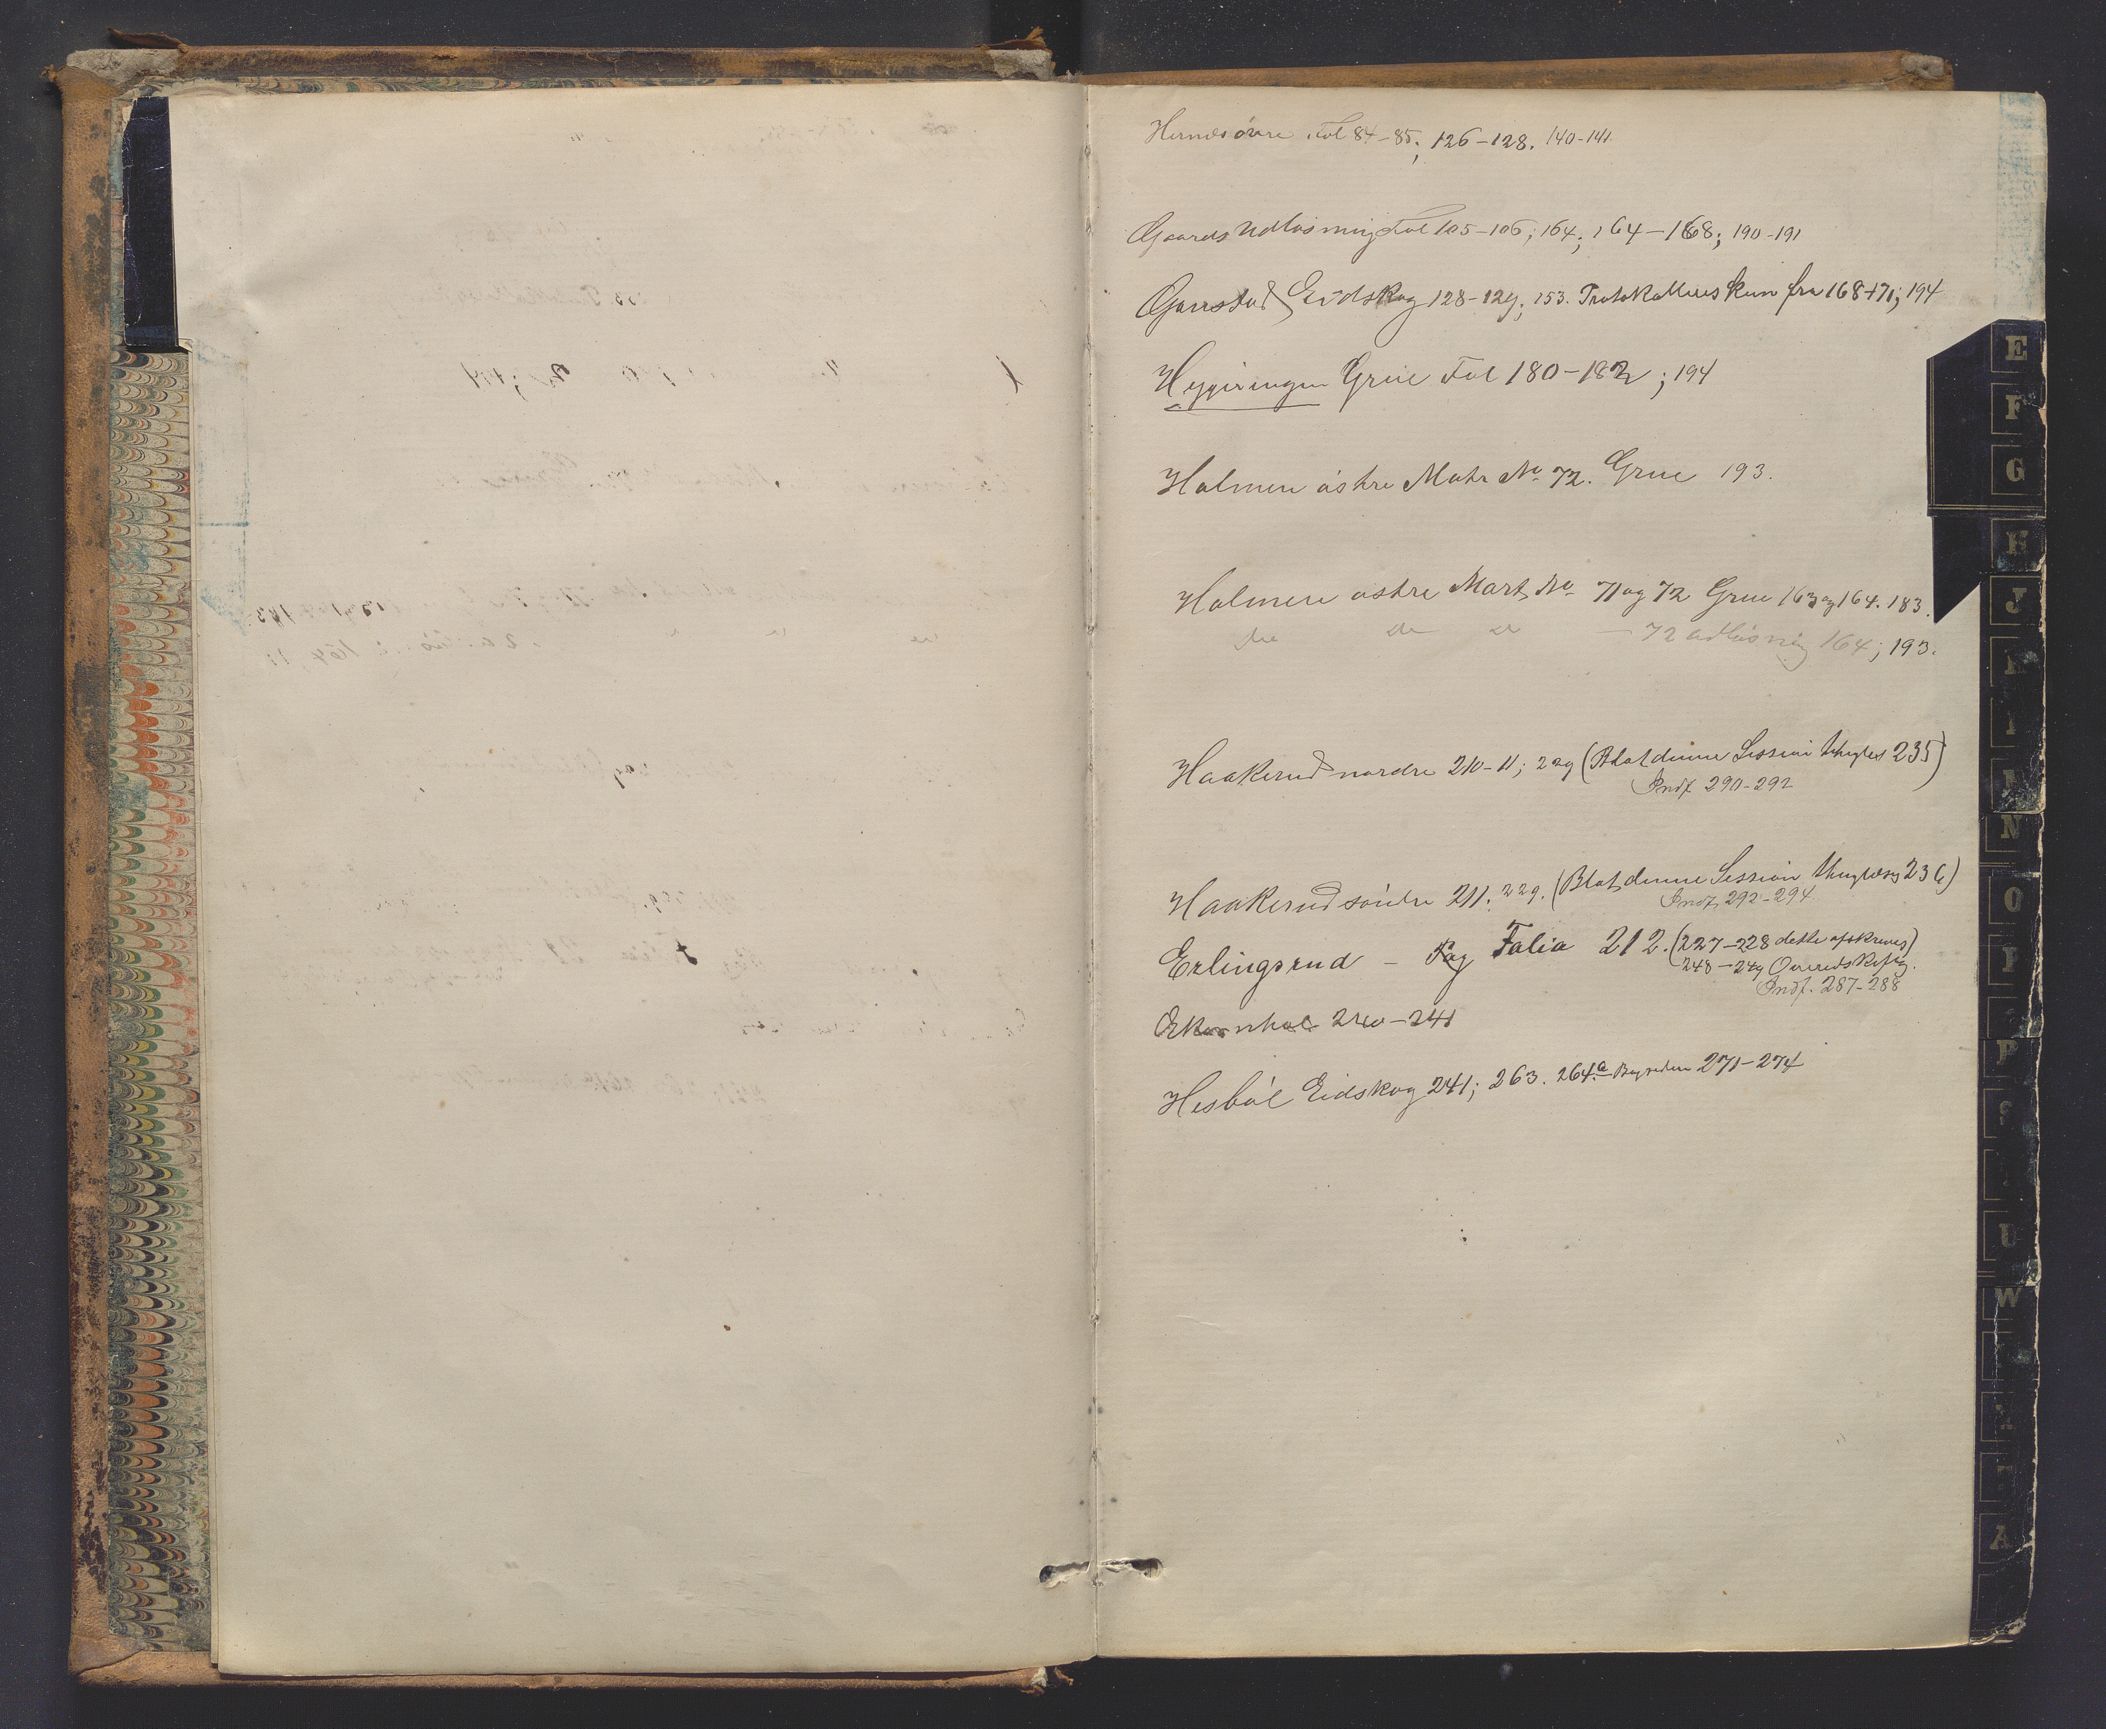 Hernes övre Fol 84-85; 126-128. 140-141
Gaards Udlösning Fol 105-106; 164; 164-168; 190-191
Garstad Eidskog 128-129; 153. Protokolleres kun fra 168-171; 194
Hyggiringen Grue Fol 180-182; 194
Holmen östre Matr No 72. Grue 193.
Holmen östre Mart. No 71 og 72 Grue 163 og 164. 183.
do do do - 72 udlösning 164; 193.
Haakerud nordre 210-11; 229 (Blot denne Session 235)
Indf. 290-292
Haakerud söndre 211. 229. (Blot denne Session 236)
Indf. 292-294
Erlingsrud - Folio 212. (227-228 dette afskrives)
248-249
Indf. 287-288
240-241
Hesböl Eidskog 241; 263. 264a Bagsiden 271-274
E
F
G
H
J
N
O
P
R
S
U
W
A